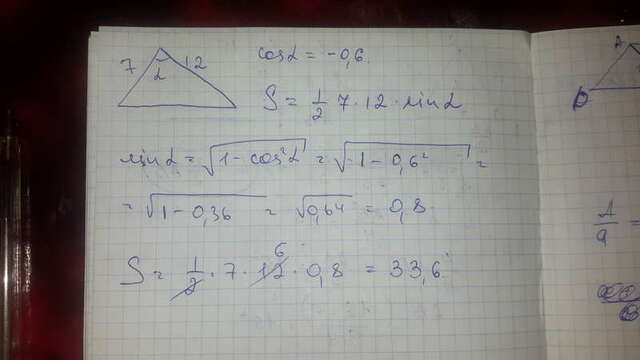 7 12 α cosα = -0,6
S = 1/2 7·12·sinα
sinα = √(1-cos²α) = √(1-0,6²) =
= √(1-0,36) = √0,64 = 0,8
S = 1/2 · 7 · 12 6 · 0,8 = 33,6
A